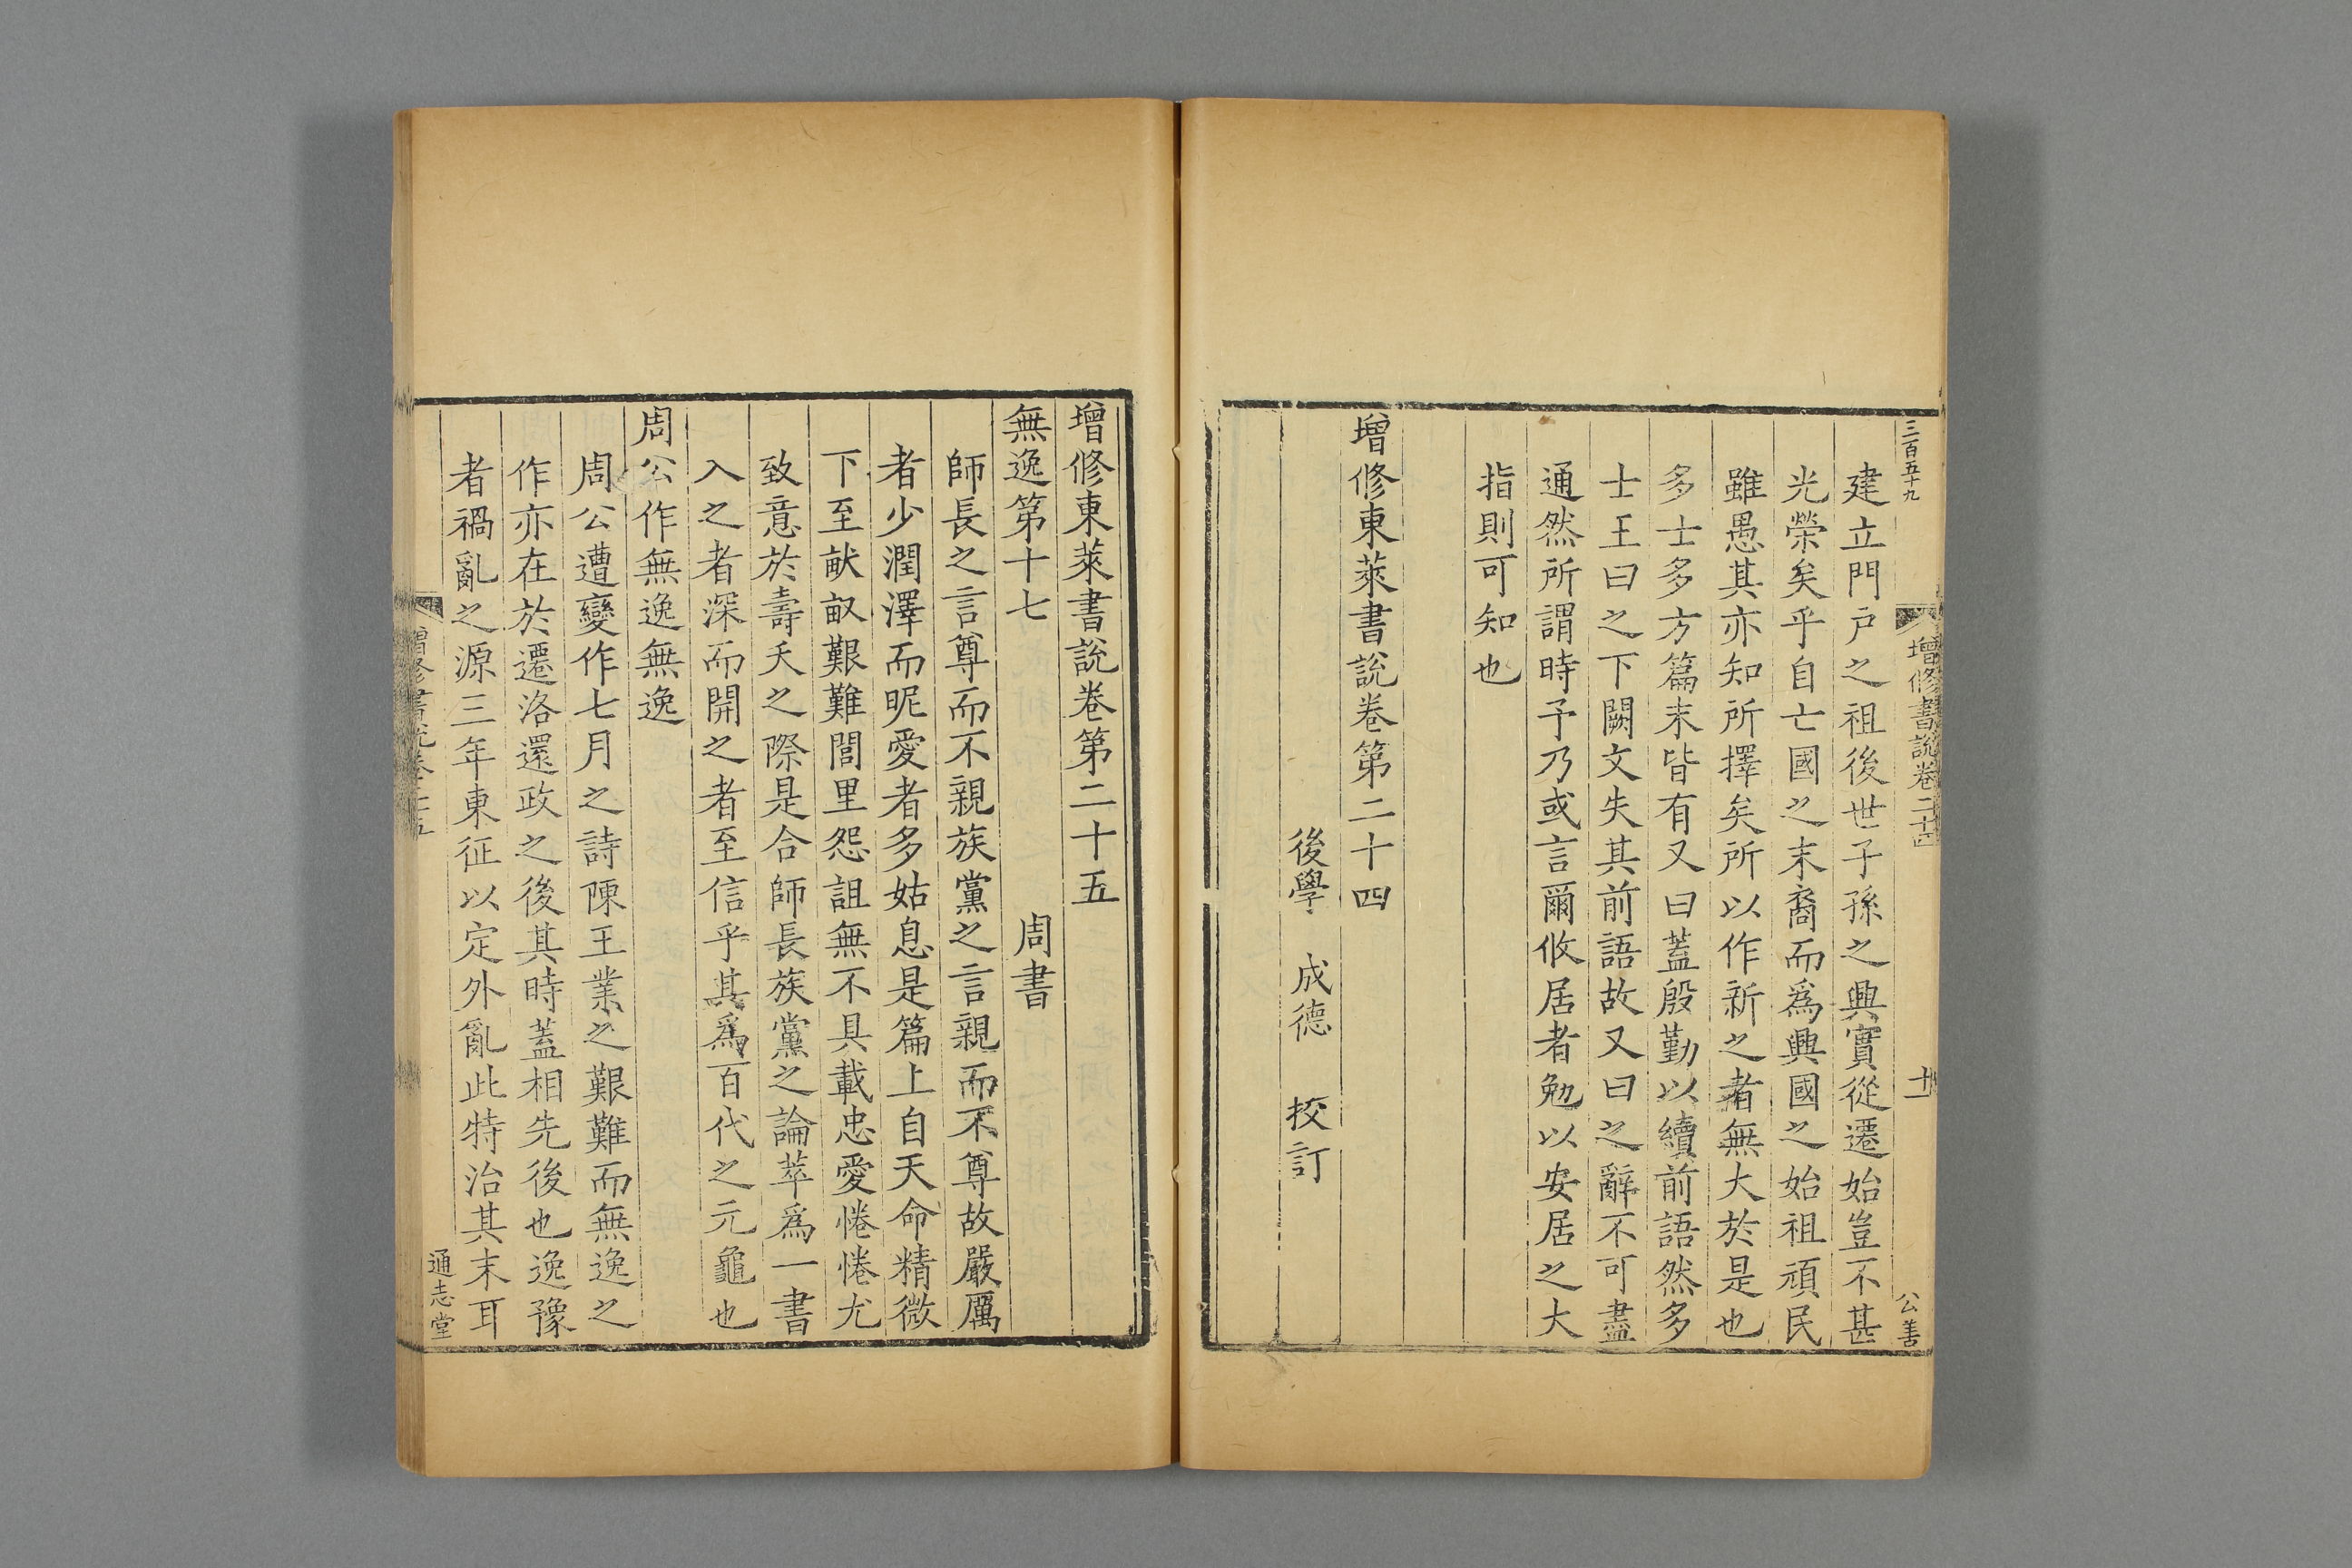 三百五十九
增修書說卷二十四
十一
公善
建立門戶之祖後世子孫之興實從遷始豈不甚
光榮矣乎自亡國之末裔而爲興國之始祖頑民
雖愚其亦知所擇矣所以作新之者無大於是也
多士多方篇末皆有又曰蓋殷勤以續前語然多
士王曰之下闕文失其前語故又曰之辭不可盡
通然所謂時予乃或言爾攸居者勉以安居之大
指則可知也
增修東萊書說卷第二十四
後學 成德 挍訂
增修東萊書說卷第二十五
無逸第十七 周書
師長之言尊而不親族黨之言親而不尊故嚴厲
者少潤澤而昵愛者多姑息是篇上自天命精微
下至畎畝艱難閭里怨詛無不具載忠愛惓惓尤
致意於壽夭之際是合師長族黨之論萃爲一書
入之者深而開之者至信乎其爲百代之元龜也
周公作無逸無逸
周公遭變作七月之詩陳王業之艱難而無逸之
作亦在於遷洛還政之後其時蓋相先後也逸豫
者禍亂之源三年東征以定外亂此特治其末耳
增修書說卷二十五
通志堂